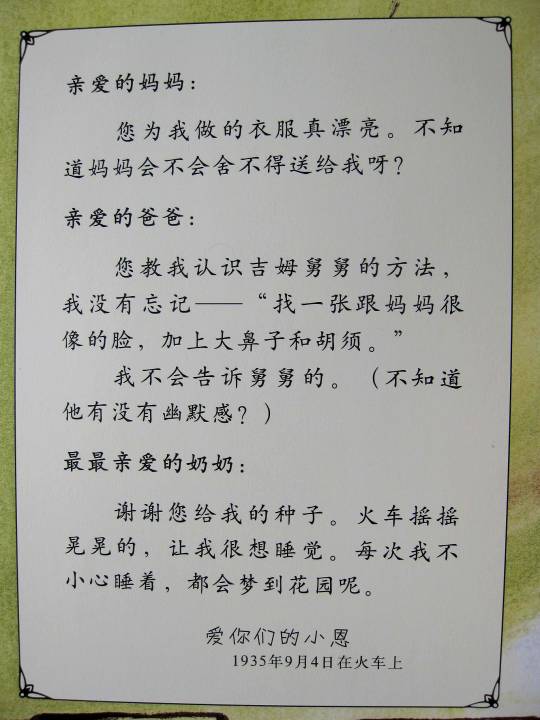 亲爱的妈妈：
您为我做的衣服真漂亮。不知
道妈妈会不会舍不得送给我呀？
亲爱的爸爸：
您教我认识吉姆舅舅的方法，
我没有忘记——“找一张跟妈妈很
像的脸，加上大鼻子和胡须。”
我不会告诉舅舅的。（不知道
他有没有幽默感？）
最最亲爱的奶奶：
谢谢您给我的种子。火车摇摇
晃晃的，让我很想睡觉。每次我不
小心睡着，都会梦到花园呢。
爱你们的小恩
1935年9月4日在火车上